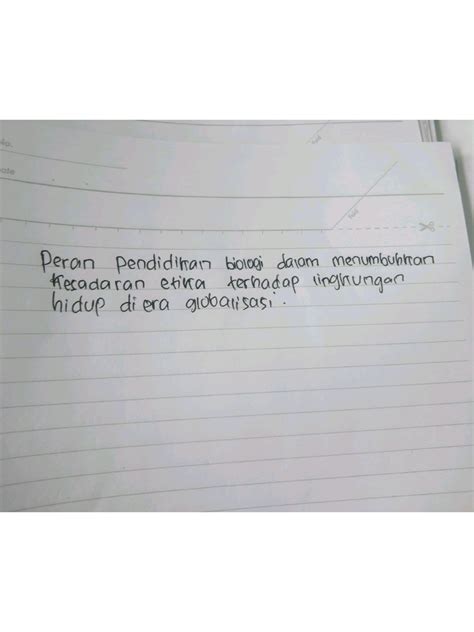 No.
ate
Peran Pendidikan biologi dalam menumbuhkan
kesadaran etika terhadap lingkungan
hidup di era globalisasi.